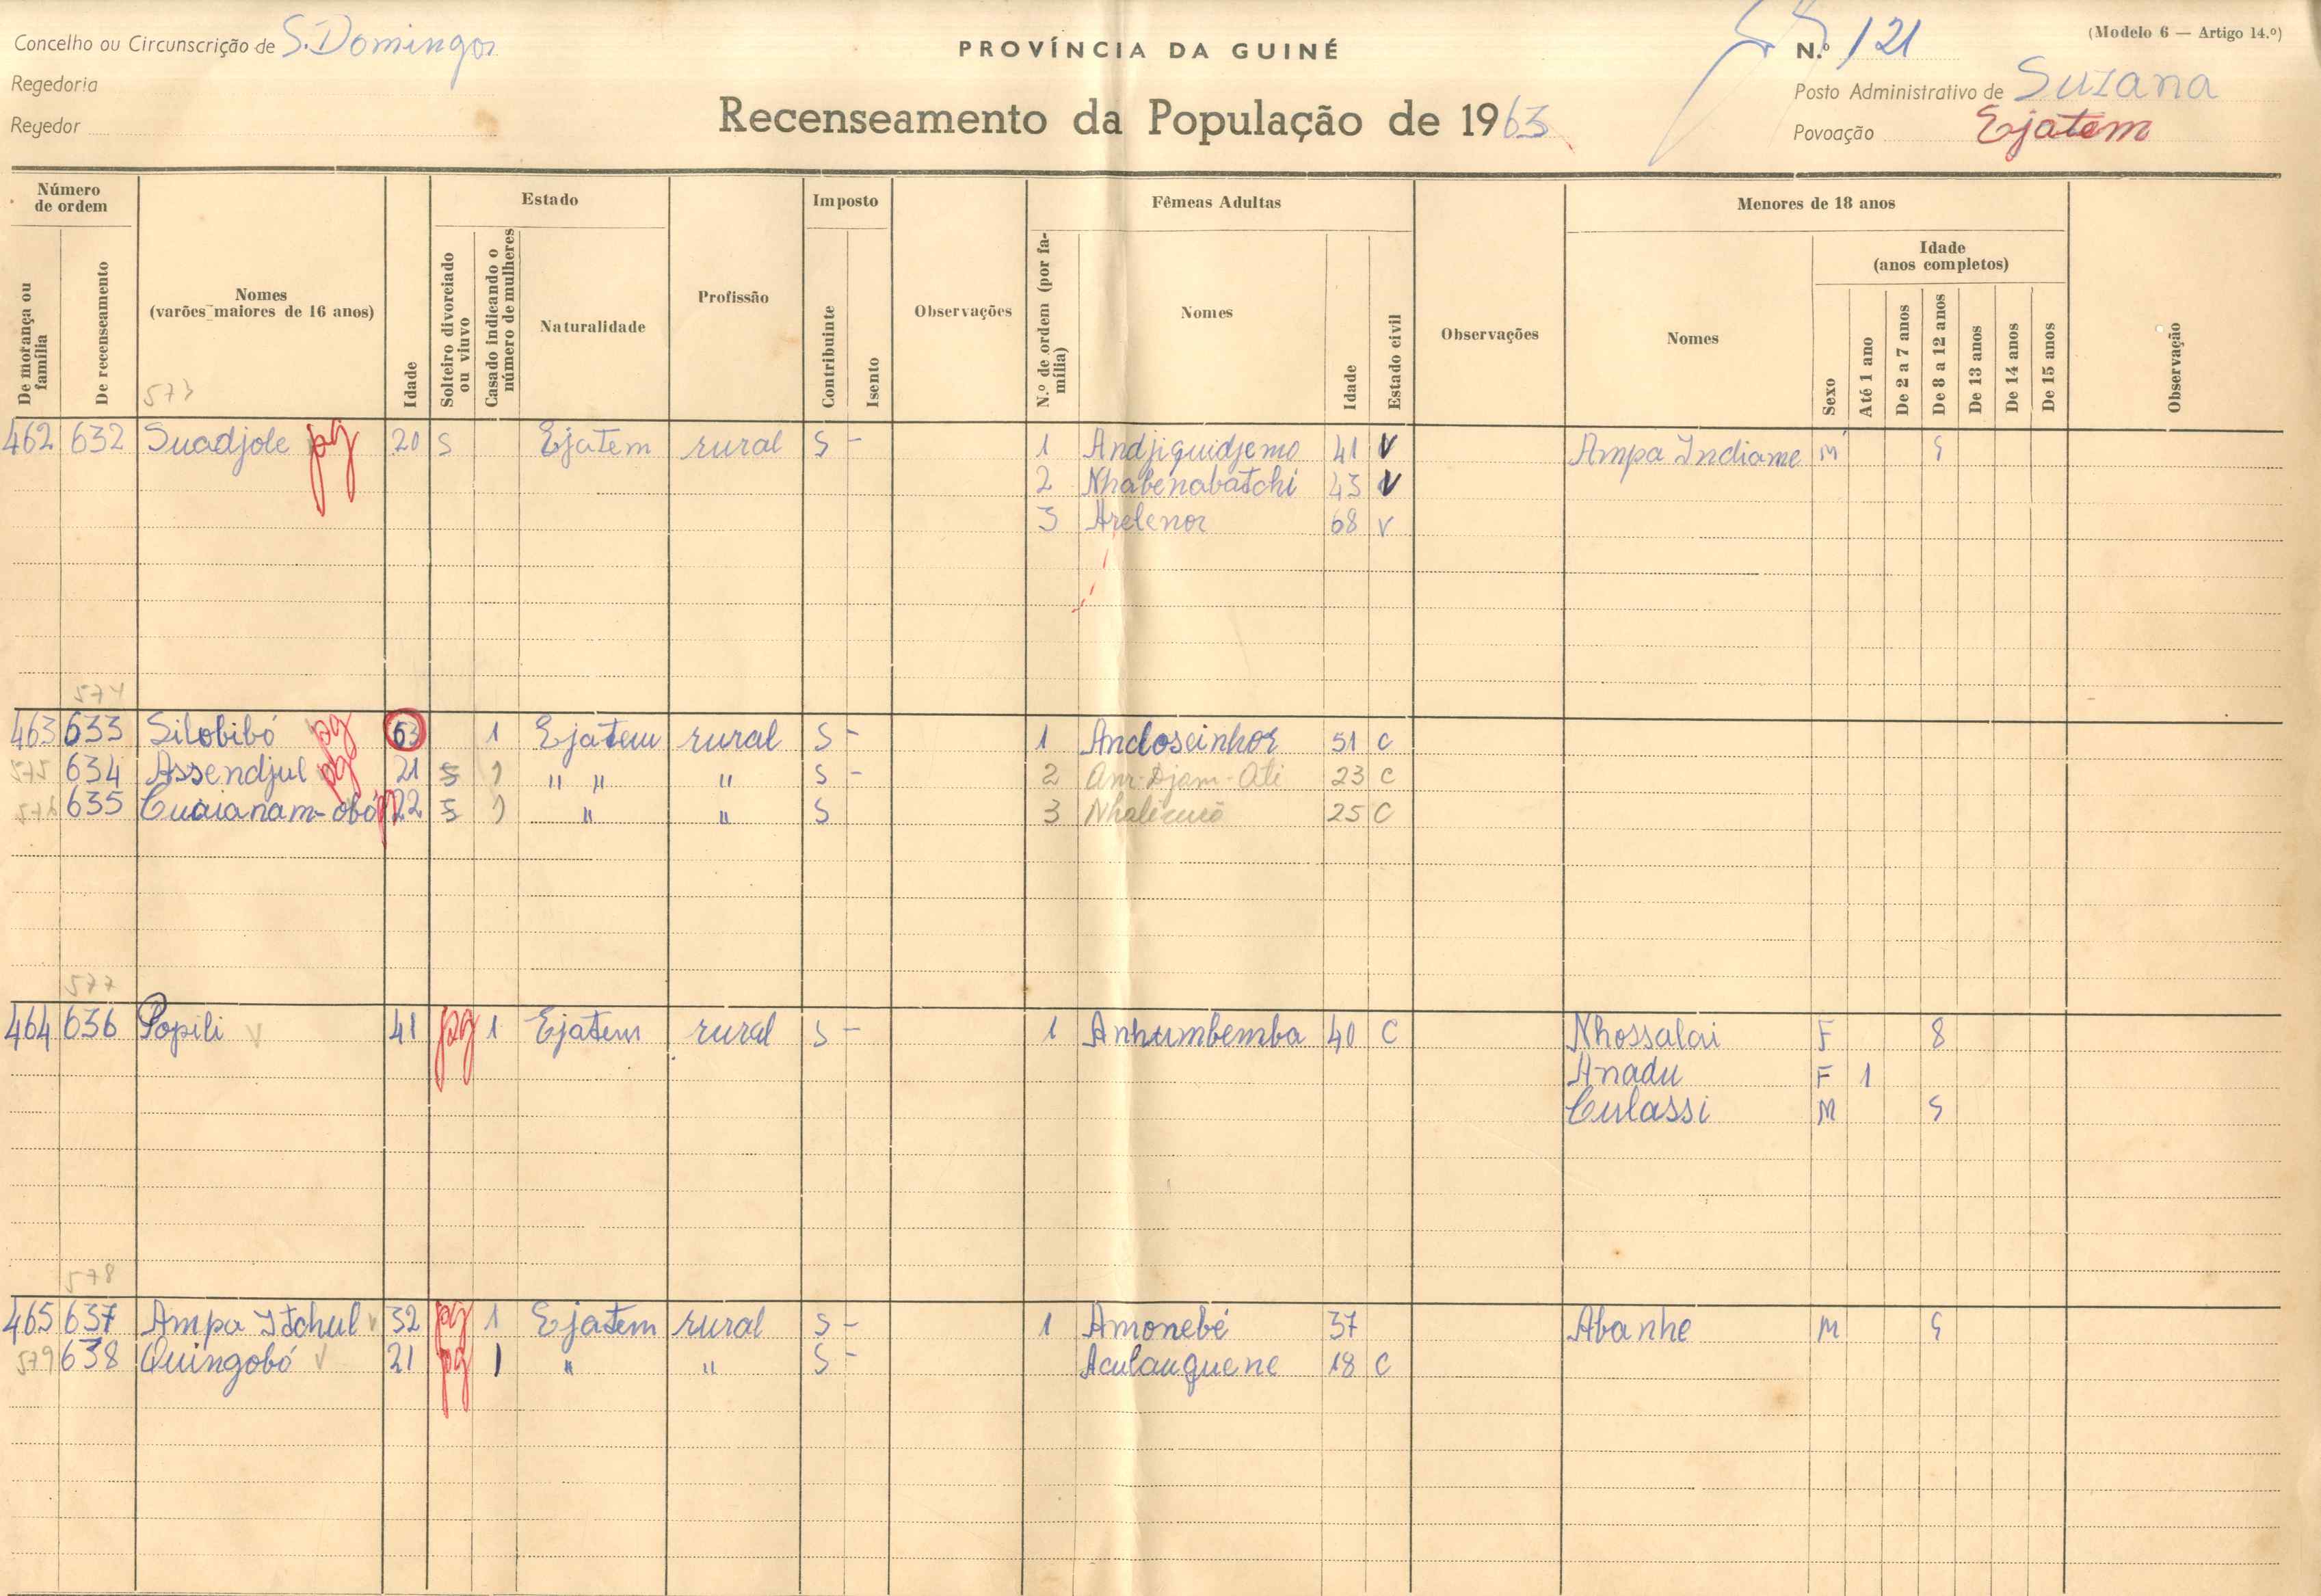 Concelho ou Circunscrição de S. Domingos
PROVÍNCIA DA GUINÉ
N.º 121
(Modelo 6 — Artigo 14.º)
Regedoria
Posto Administrativo de Suzana
Regedor
Recenseamento da População de 1963
Povoação Ejatem
Número de ordem
Estado
Imposto
Fêmeas Adultas
Menores de 18 anos
De morança ou família
De recenseamento
Nomes (varões maiores de 16 anos)
Idade
Solteiro divorciado ou viuvo
Casado indicando o número de mulheres
Naturalidade
Profissão
Contribuinte
Isento
Observações
N.º de ordem (por família)
Nomes
Idade
Estado civil
Observações
Nomes
Sexo
Idade (anos completos)
Até 1 ano
De 2 a 7 anos
De 8 a 12 anos
De 13 anos
De 14 anos
De 15 anos
Observação
573
462 632 Suadjole pg 20 S Ejatem rural S - 1 Andjiguidjemo 41 V Ampa Indiame M 9
2 Nhabenabatchi 43 V
3 Arelenor 68 V
574
463 633 Silobibó pg 63 1 Ejatem rural S - 1 Andoseinhor 51 C
575 634 Assendjul pg 21 S 1 " " " S - 2 Anr-Djam-Ati 23 C
576 635 Cuaianam-obó 22 S 1 " " S 3 25 C
577
464 636 Popili V 41 pg 1 Ejatem rural S - 1 Anhumbemba 40 C Nhossalai F 8
Anadu F 1
Culassi M 9
578
465 637 Ampa Itchul V 32 pg 1 Ejatem rural S - 1 Amonebé 37 Abanhe M 9
579 638 Quingobó V 21 pg 1 " " S - Aculauguene 18 C